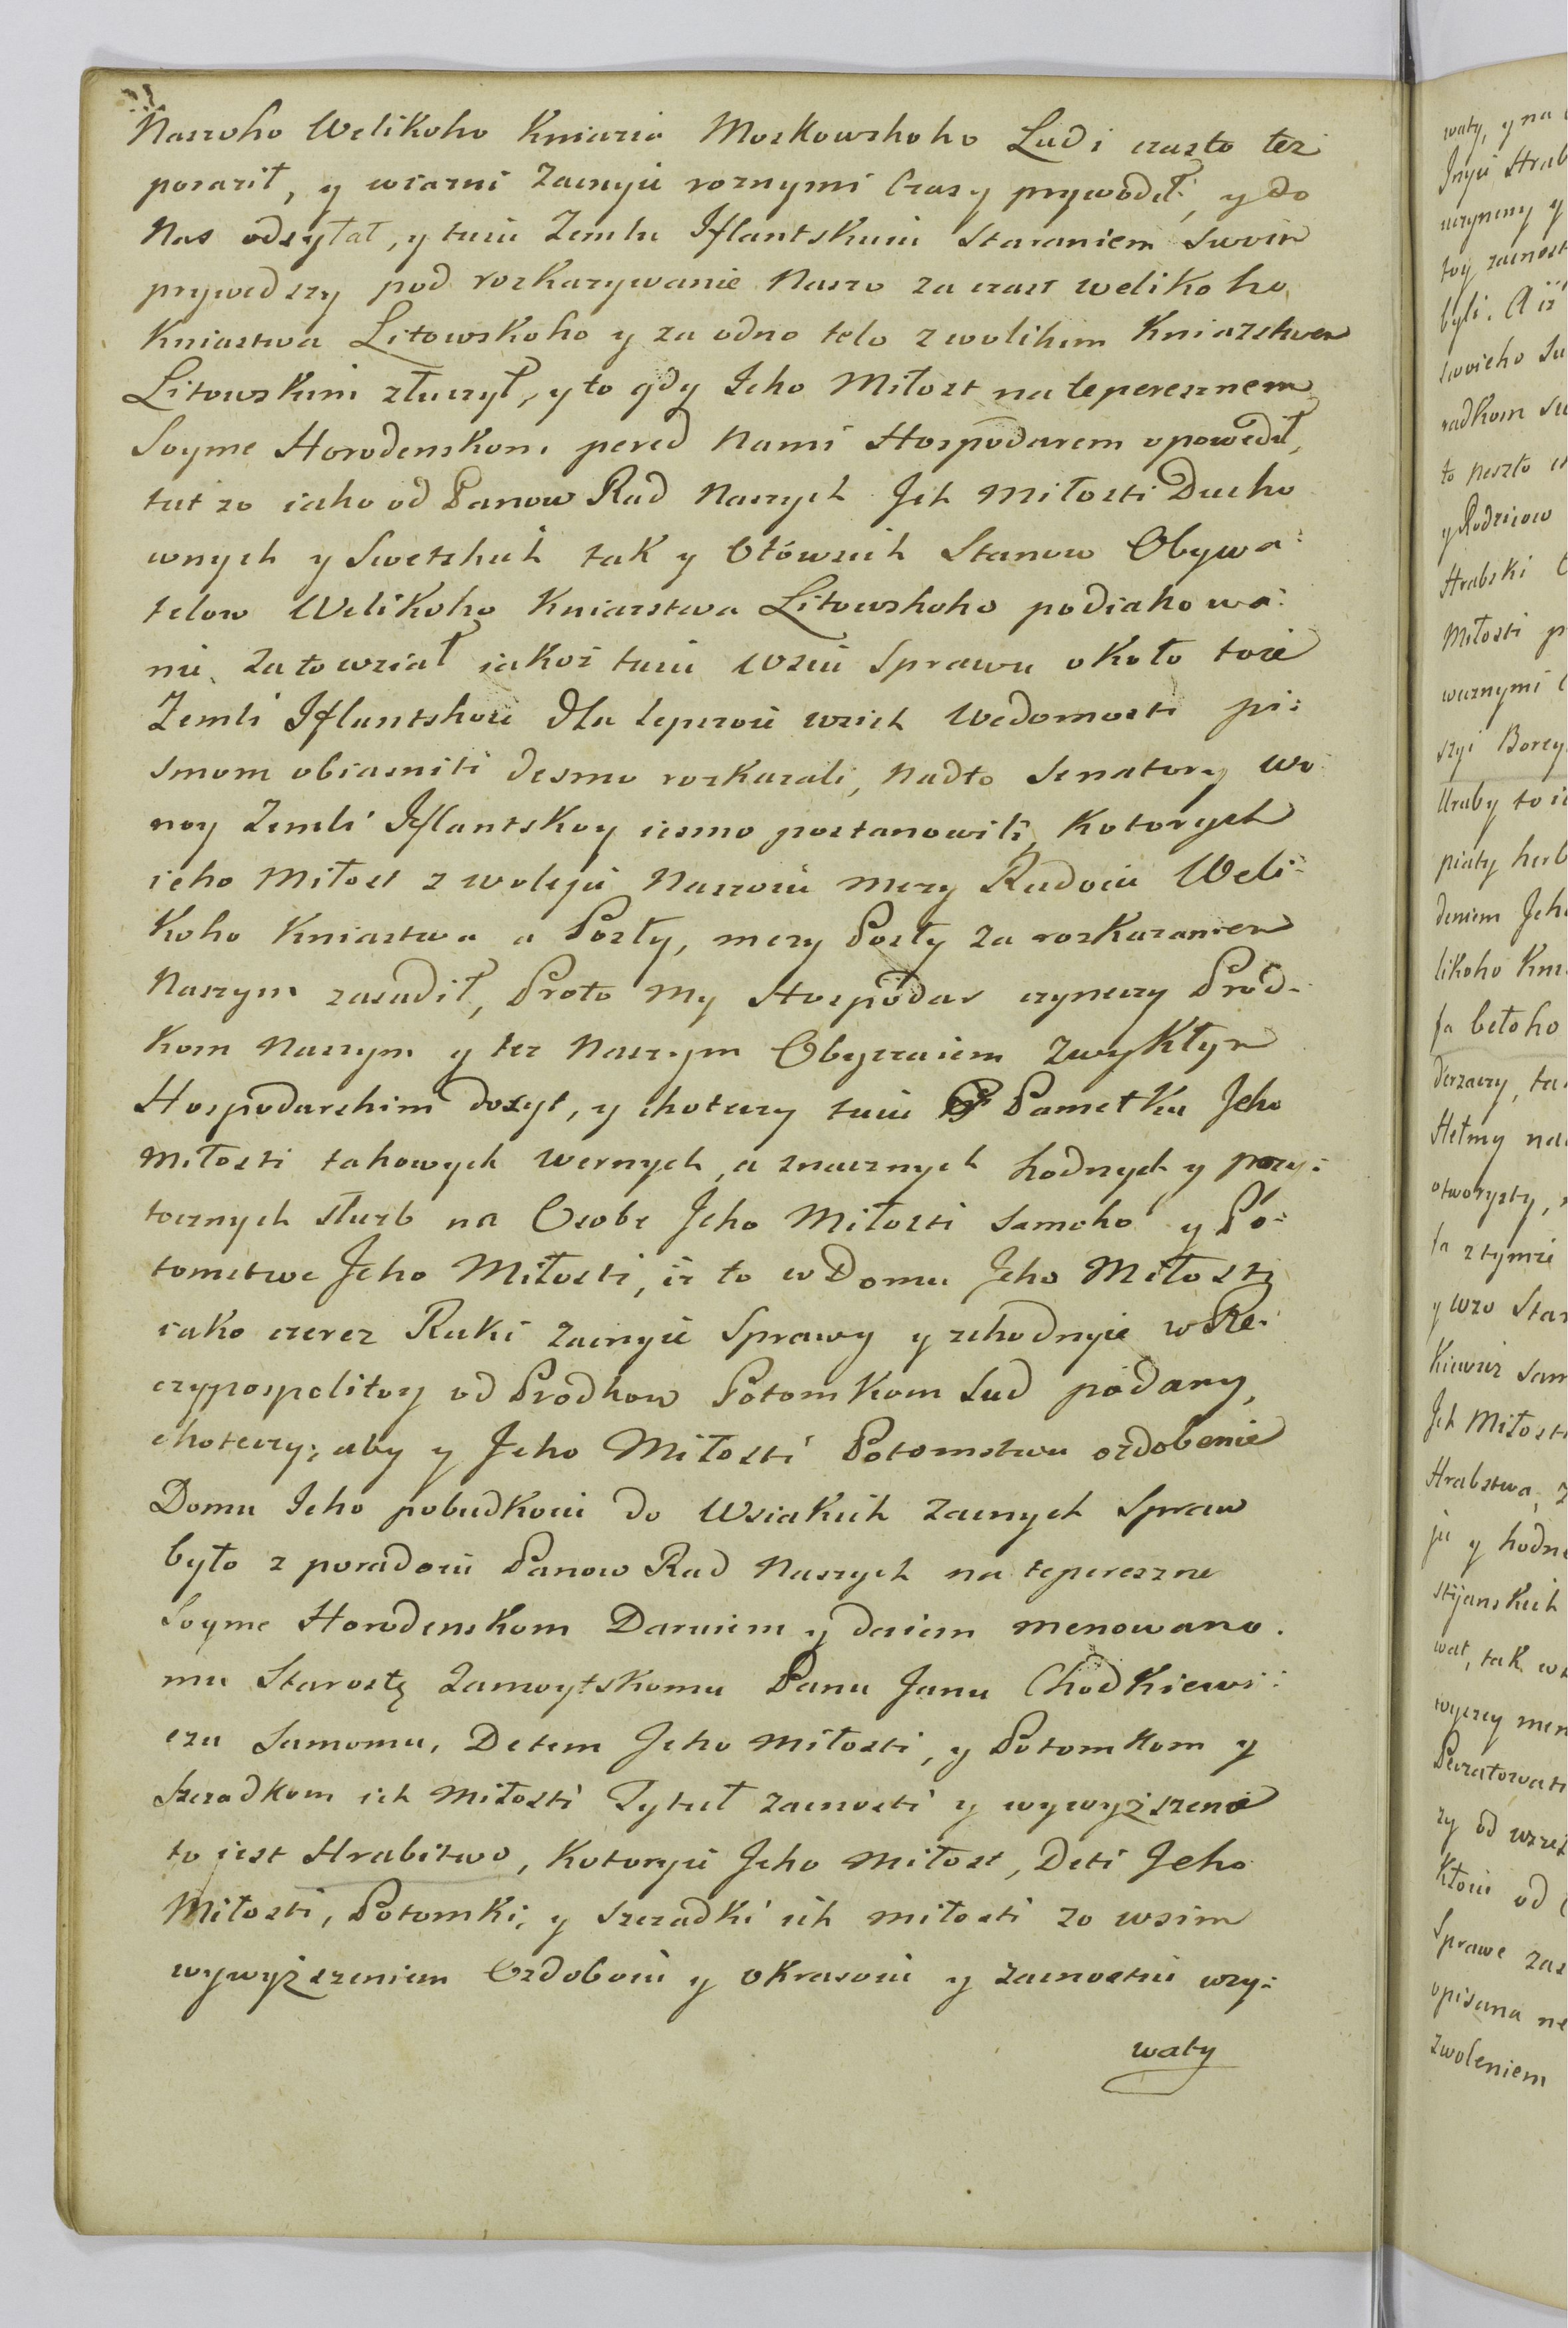 Naszoho Welikoho Kniazia Moskowskoho Ludi czasto też
poraził, y wiazni Zacnyie roznymi Czasy prywodił, y do
Nas odsyłał, y tuiu Zemlu Iflantskuiu Staraniem Swoim
prywedszy pod rozkazywanie Naszo za czast welikoho
Kniastwa Litowskoho y za odno telo z wolikim Kniazstwem
Litowskim złuczył, y to gdy Jeho Miłost na teperesznem
Soyme Horodenskom pered Nami Hospodarem opowedił,
tut zo iako od Panow Rad Naszych Jch Miłosti Ducho
wnych y Swetskich tak y Ołówsich Stanow Obywa:
telow Welikoho Kniazstwa Litowskoho podiakowa:
nie za to wział iakoż tuiu wsiu Sprawu około toie
Zemli Iflantskoie dla lepszoie wsich Wedomosti pi:
smom obiasniti iesmo rozkazali, nadto Senatory wo
noy Zemli Iflantskoy iesmo postanowili, Kotorych
ieho Miłost z woleju Naszoiu mezy Radoiu Weli:
koho Kniastwa a Posły, mezy Posły za rozkazaniem
Naszym zasadił, Proto My Hospodar czyneczy Prod-
kom Naszym y tez Naszym Obyczaiem Zwykłym
Hospodarskim dosyt, y choteczy tuiu Pametku Jeho
Miłosti takowych wernych, a znacznych hodnych y pozy:
tocznych służb na Osobe Jeho Miłosti samoho y Po:
tomstwe Jeho Miłosti, iż to w Domu Jeho Miłosti
iako czerez Ruki Zacnyie Sprawy y zchodnyie w Re:
czypospolitoy od Prodkow Potomkom sud podany,
choteczy; aby y Jeho Miłosti Potomstwu ozdobenie
Domu Jeho pobudkoiu do Wsiakich Zacnych Spraw
było z poradoiu Panow Rad Naszych na tepereszne
Soyme Horodenskom Daruiem y daiem menowano.
mu Starostę Zamoytskomu Panu Janu Chodkiewi:
czu Samomu, Detem Jeho miłosti, y Potomkom y
Szczadkom ich Miłosti Tytuł zacnosti y wywyższenie
to iest Hrabstwo, Kotoryie Jeho Miłost, Deti Jeho
Miłosti, Potomki, y szczadki ich miłosti zo wsim
wywyższeniem Ozdoboiu y okrasoiu y zacnostiu uzy:
waty
waty, y na
Jnyie Hrab
uczyneny y
toy zacnost
byli. A iż
swoieho Su
radkom su
to peszło
y Rodziców
Hrabski
Miłosti p
wernymi
szyi Borzy
Hraby to i
piaty herb
deniem Jeho
likoho Kni
fa bełoho
derzaczy, ta
Hełmy na
otworysty,
fa z tymże
y wzo Star
Kiewicz Sam
Jch Miłosti
Hrabstwa, Z
ju y hodne
stijanskich
wat, tak w
wyszey men
Peczatowati
zy od wszel
Ktoiu od
Sprawe zas
opisana ne
zwoleniem